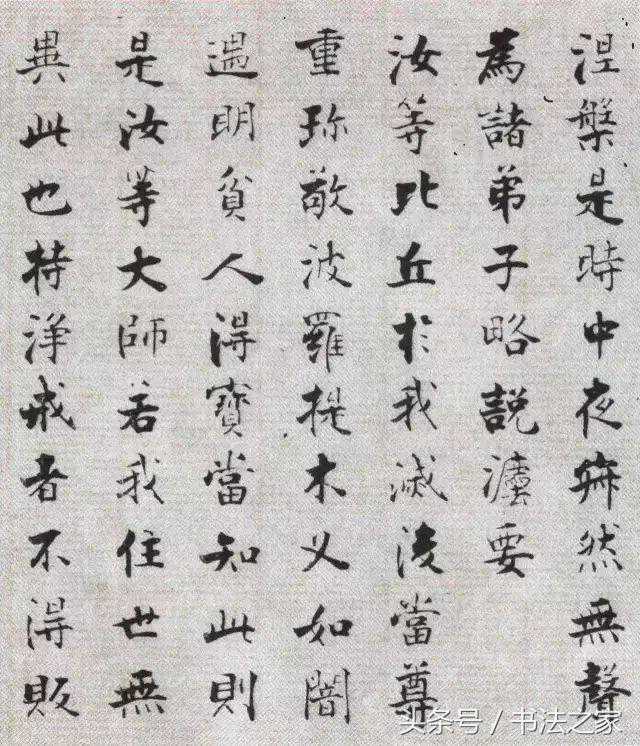 涅槃是時中夜寂然無聲
為諸弟子略說法要
汝等比丘於我滅後當尊
重珎敬波羅提木叉如闇
遇明貧人得寶當知此則
是汝等大師若我住世無
異此也持淨戒者不得販
头条号 / 书法之家